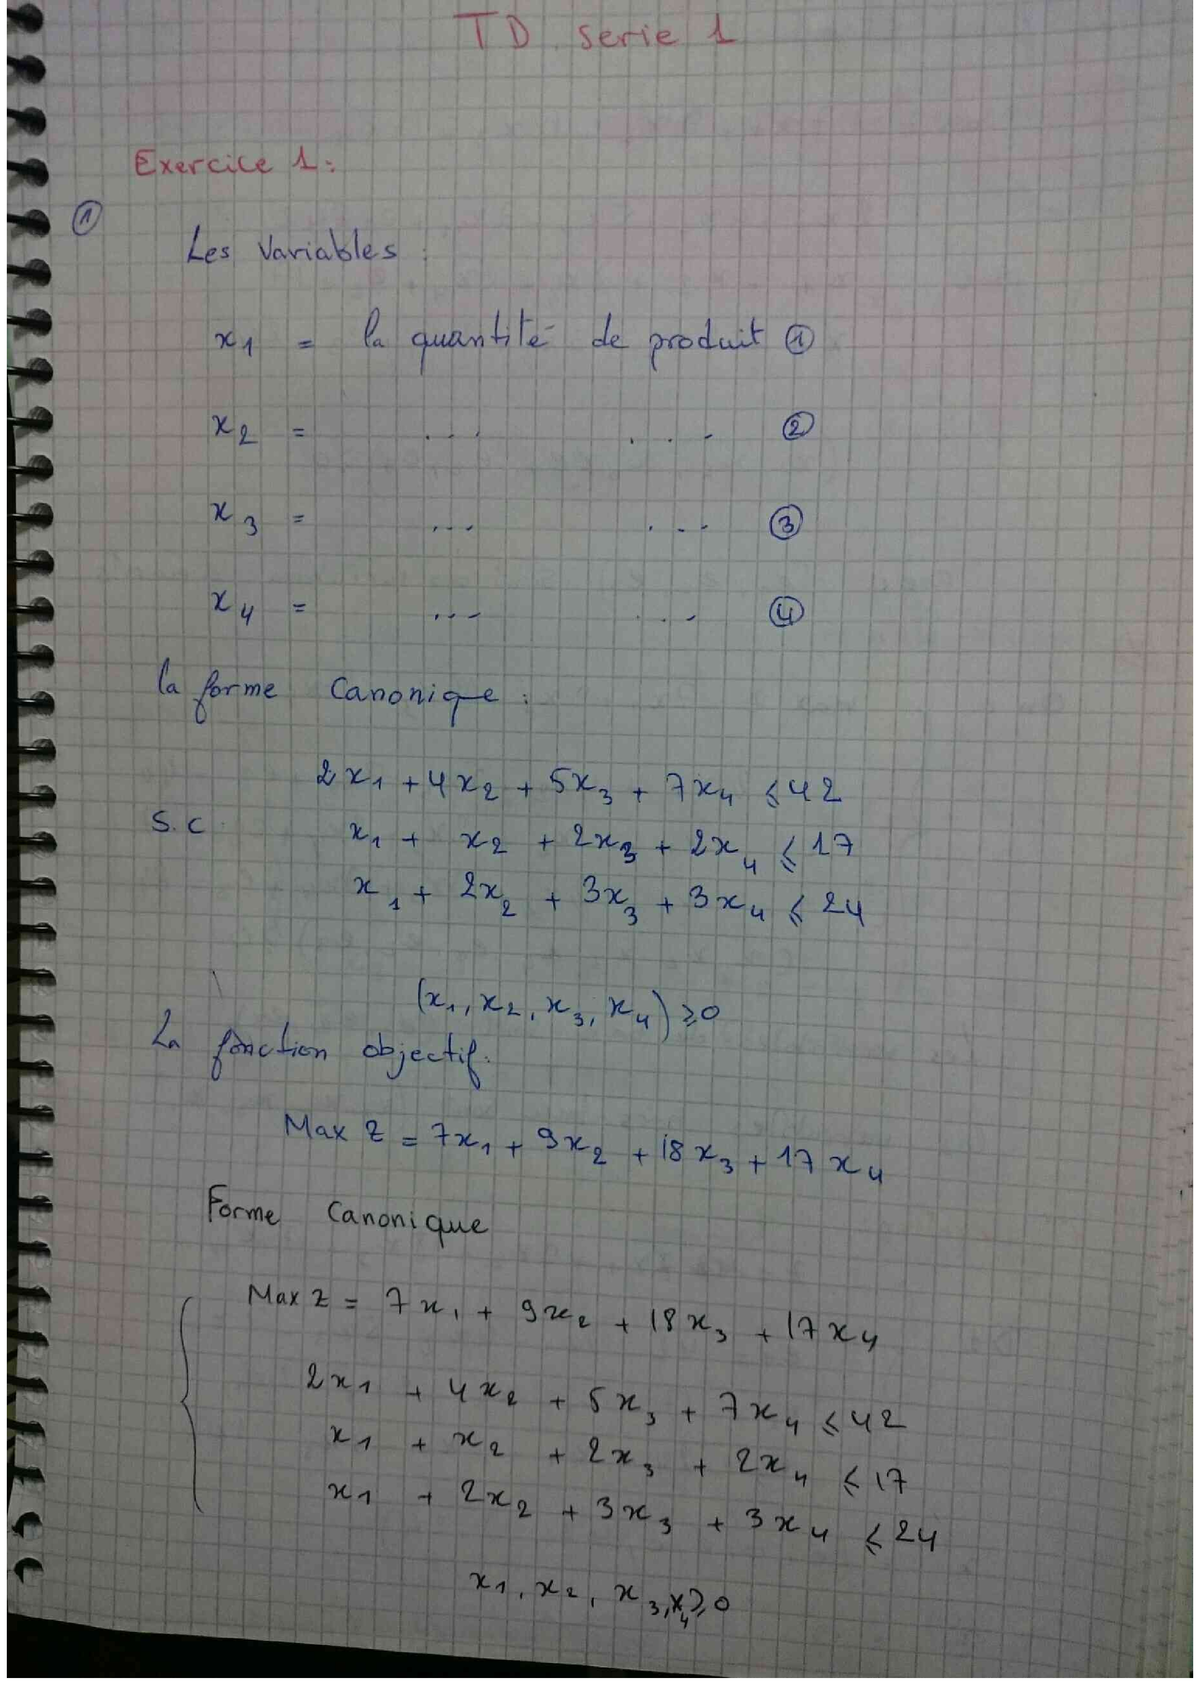 TD serie 1
Exercice 1:
①
Les Variables :
x₁ = la quantité de produit ①
x₂ = ... ... ②
x₃ = ... ... ③
x₄ = ... ... ④
la forme Canonique :
2x₁ + 4x₂ + 5x₃ + 7x₄ ⩽ 42
S.C x₁ + x₂ + 2x₃ + 2x₄ ⩽ 17
x₁ + 2x₂ + 3x₃ + 3x₄ ⩽ 24
(x₁, x₂, x₃, x₄) ⩾ 0
La fonction objectif.
Max Z = 7x₁ + 9x₂ + 18x₃ + 17x₄
Forme Canonique
Max z = 7x₁ + 9x₂ + 18x₃ + 17x₄
2x₁ + 4x₂ + 5x₃ + 7x₄ ⩽ 42
x₁ + x₂ + 2x₃ + 2x₄ ⩽ 17
x₁ + 2x₂ + 3x₃ + 3x₄ ⩽ 24
x₁, x₂, x₃, x₄ ⩾ 0